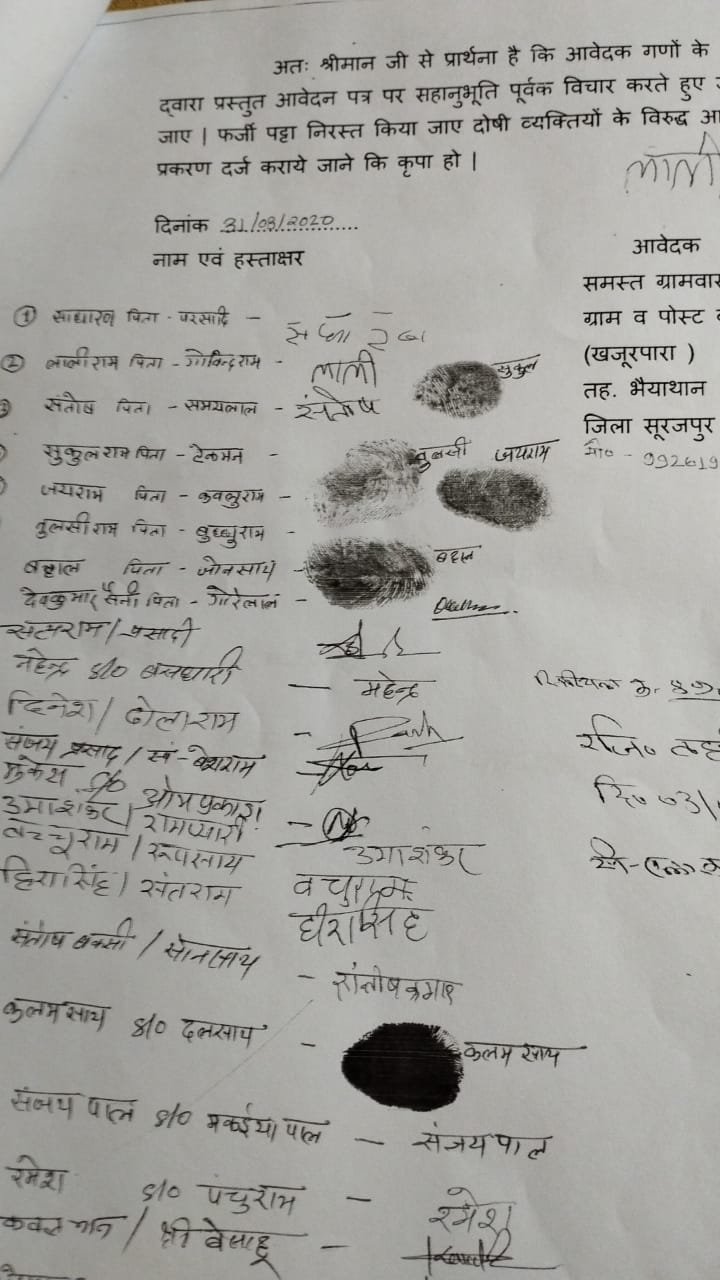 अतः श्रीमान जी से प्रार्थना है कि आवेदक गणों के
द्वारा प्रस्तुत आवेदन पत्र पर सहानुभूति पूर्वक विचार करते हुए
जाए | फर्जी पट्टा निरस्त किया जाए दोषी व्यक्तियों के विरुद्ध
प्रकरण दर्ज कराये जाने कि कृपा हो |
लाली
दिनांक 31/08/2020
नाम एवं हस्ताक्षर
आवेदक
समस्त ग्रामवा
ग्राम व पोस्ट
(खजूरपारा )
तह. भैयाथान
जिला सूरजपुर
मो० - 992619
① साधारण पिता - परसादि -
② लालीराम पिता - गोविन्दराम - लाली
संतोष पिता - समयलाल - संतोष
सुकुल
सुकुलराम पिता - टेकमन -
तुलसी जयराम
जयराम पिता - कवलुराम -
तुलसीराम पिता - बुध्धुराम -
बहाल पिता - जोनसाय - बहाल
देवकुमार सैनी पिता - गोरेलाल -
सत्यराम / प्रसादी
महेन्द्र S/O - महेन्द्र
दिनेश / ढोलाराम -
संजय प्रसाद / स्व.
मुकेश S/O ओमप्रकाश
उमाशंकर / रामप्यारी - उमाशंकर
बच्चुराम / रूपसाय
हिरासिंह / संतराम हीरासिंह
संतोष / सोनसाय - संतोषकुमार
कलमसाय S/O दलसाय - कलम साय
संजय पाल S/O मकईया पाल - संजय पाल
रमेश S/O पंचुराम - रमेश
/ श्री -